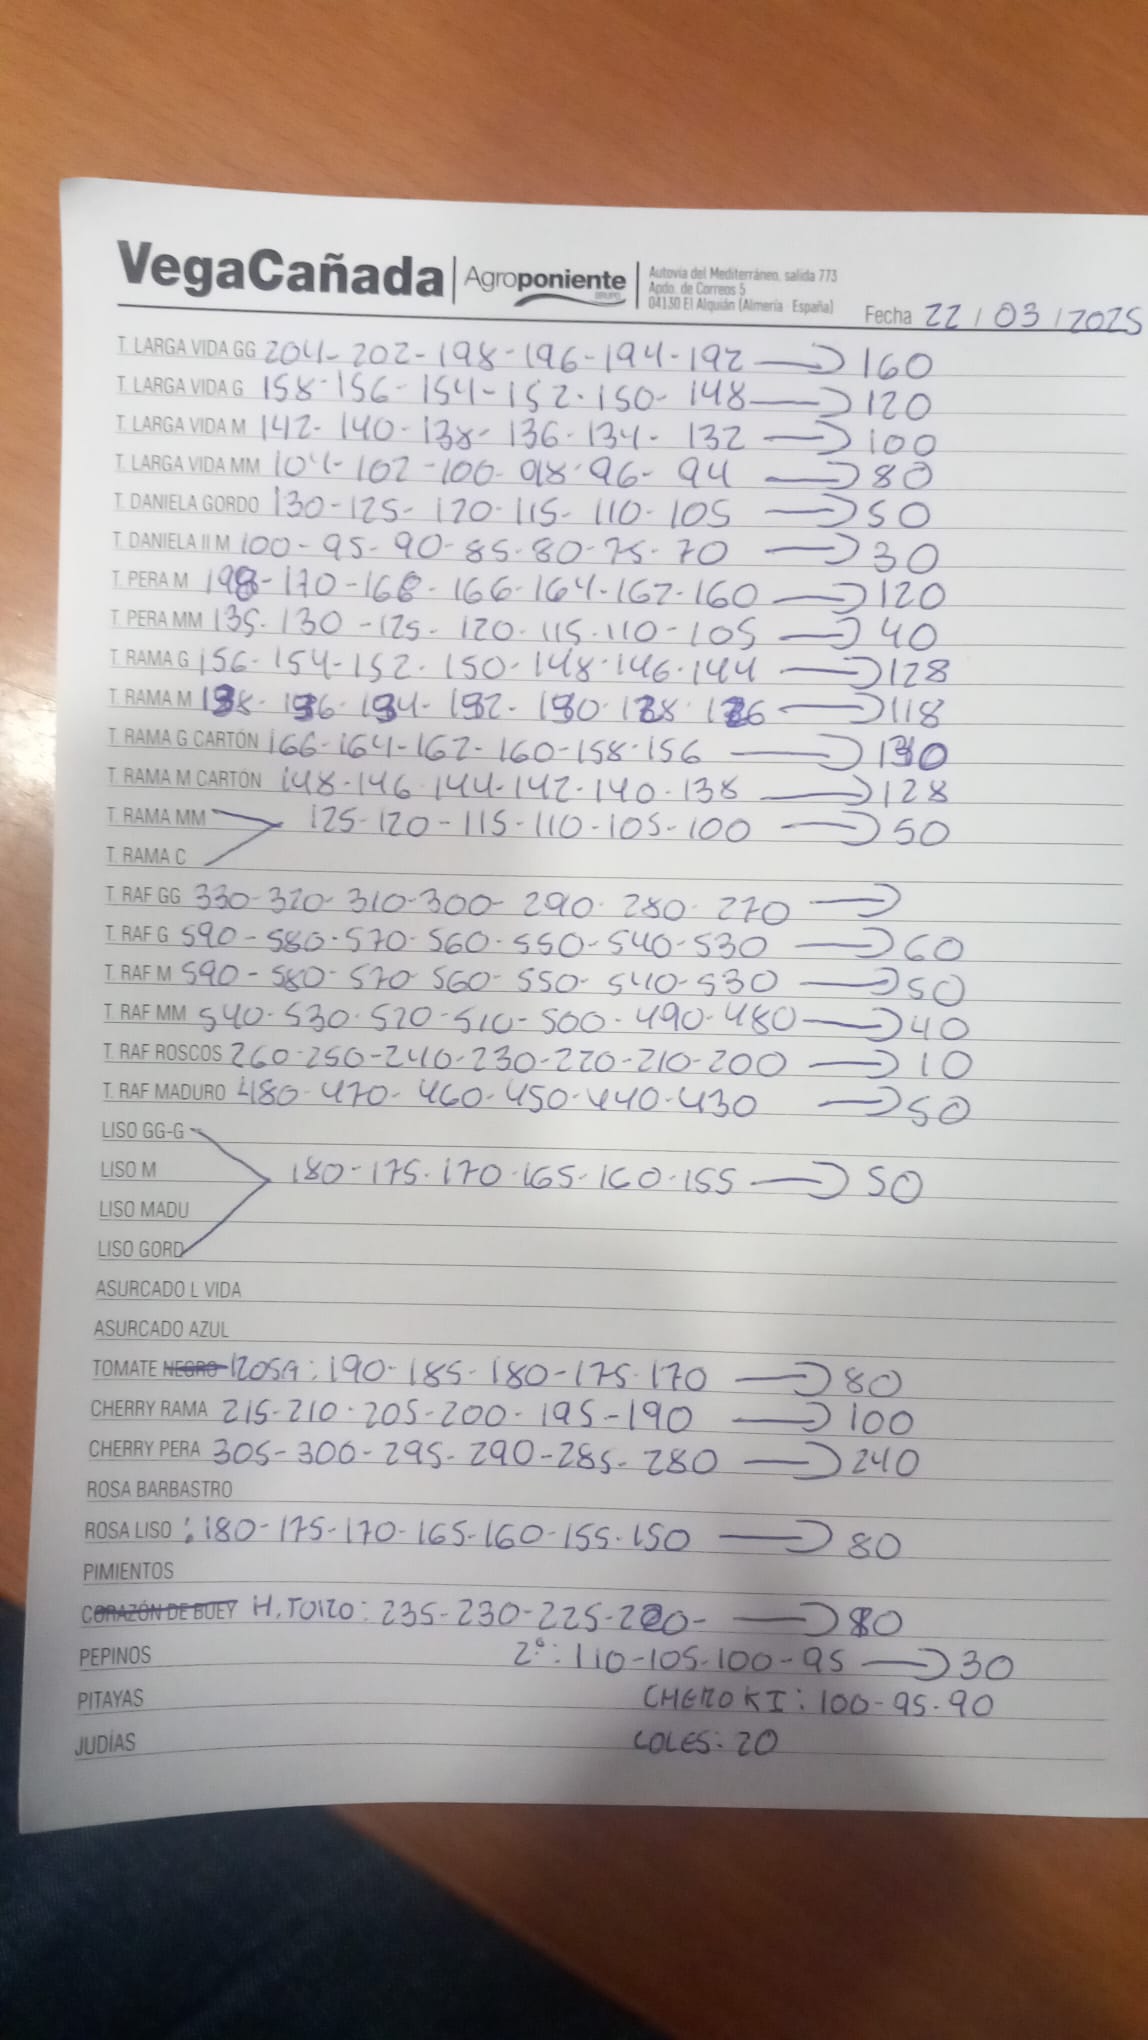 VegaCañada | Agroponiente GRUPO | Autovía del Mediterráneo, salida 773
Apdo. de Correos 5
04130 El Alquián (Almería España)
Fecha 22/03/2025
T. LARGA VIDA GG 204-202-198-196-194-192 → 160
T. LARGA VIDA G 158-156-154-152-150-148 → 120
T. LARGA VIDA M 142-140-138-136-134-132 → 100
T. LARGA VIDA MM 104-102-100-98-96-94 → 80
T. DANIELA GORDO 130-125-120-115-110-105 → 50
T. DANIELA II M 100-95-90-85-80-75-70 → 30
T. PERA M 170-168-166-164-162-160 → 120
T. PERA MM 135-130-125-120-115-110-105 → 40
T. RAMA G 156-154-152-150-148-146-144 → 128
T. RAMA M → 118
T. RAMA G CARTÓN 166-164-162-160-158-156 → 130
T. RAMA M CARTÓN 148-146-144-142-140-138 → 128
T. RAMA MM 125-120-115-110-105-100 → 50
T. RAMA C
T. RAF GG 330-320-310-300-290-280-270 →
T. RAF G 590-580-570-560-550-540-530 → 60
T. RAF M 590-580-570-560-550-540-530 → 50
T. RAF MM 540-530-520-510-500-490-480 → 40
T. RAF ROSCOS 260-250-240-230-220-210-200 → 10
T. RAF MADURO 480-470-460-450-440-430 → 50
LISO GG-G
LISO M 180-175-170-165-160-155 → 50
LISO MADU
LISO GORD
ASURCADO L VIDA
ASURCADO AZUL
TOMATE NEGRO ROSA: 190-185-180-175-170 → 80
CHERRY RAMA 215-210-205-200-195-190 → 100
CHERRY PERA 305-300-295-290-285-280 → 240
ROSA BARBASTRO
ROSA LISO: 180-175-170-165-160-155-150 → 80
PIMIENTOS
CORAZÓN DE BUEY H. TORO: 235-230-225-220- → 80
PEPINOS 2ª: 110-105-100-95 → 30
PITAYAS CHEROKI: 100-95-90
JUDÍAS COLES: 20